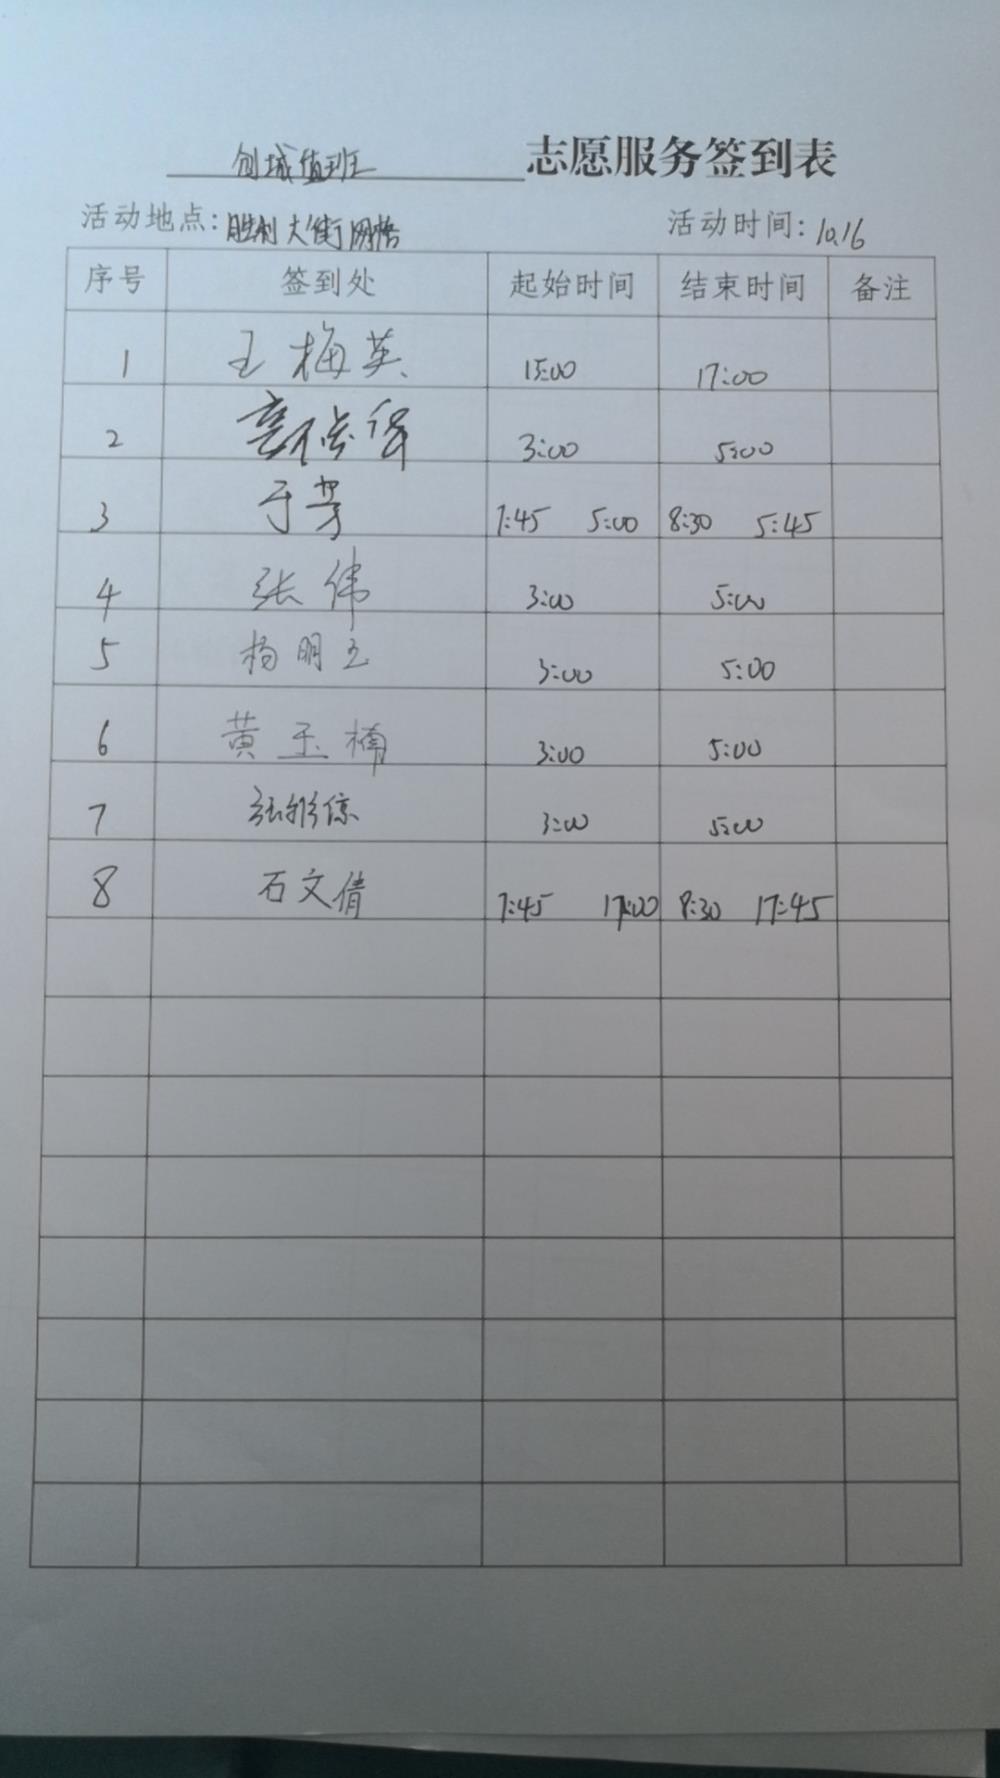 创城值班 志愿服务签到表
活动地点: 胜利大街网格 活动时间: 10.16
序号 签到处 起始时间 结束时间 备注
1 王梅英 15:00 17:00
2 3:00 5:00
3 于芳 7:45 5:00 8:30 5:45
4 张伟 3:00 5:00
5 杨明玉 3:00 5:00
6 黄玉楠 3:00 5:00
7 3:00 5:00
8 石文倩 7:45 17:00 8:30 17:45